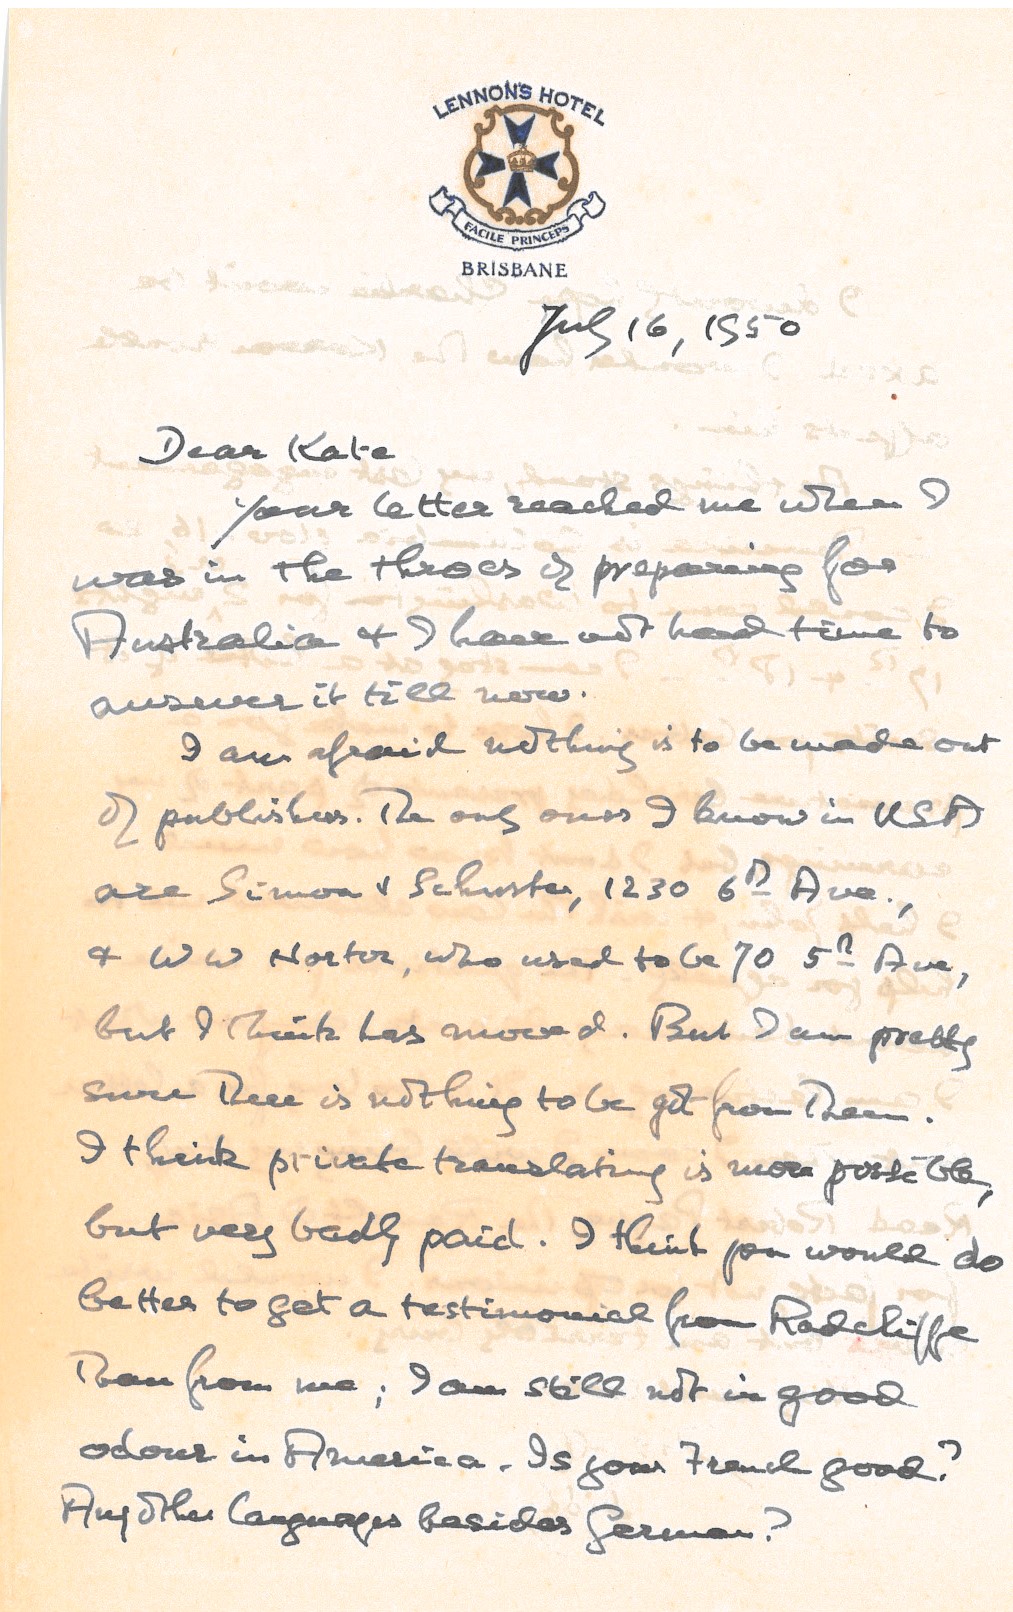 LENNON'S HOTEL
FACILE PRINCEPS
BRISBANE
July 16, 1950
Dear Kate
Your letter reached me when I
was in the throes of preparing for
Australia & I have not had time to
answer it till now.
I am afraid nothing is to be made out
of publishers. The only ones I know in USA
are Simon & Schuster, 1230 6th Ave.,
& W W Norton, who used to be 70 5th Ave,
but I think has moved. But I am pretty
sure there is nothing to be got from them.
I think private translating is more possible,
but very badly paid. I think you would do
better to get a testimonial from Radcliffe
than from me; I am still not in good
odour in America. Is your French good?
Any other languages besides German?